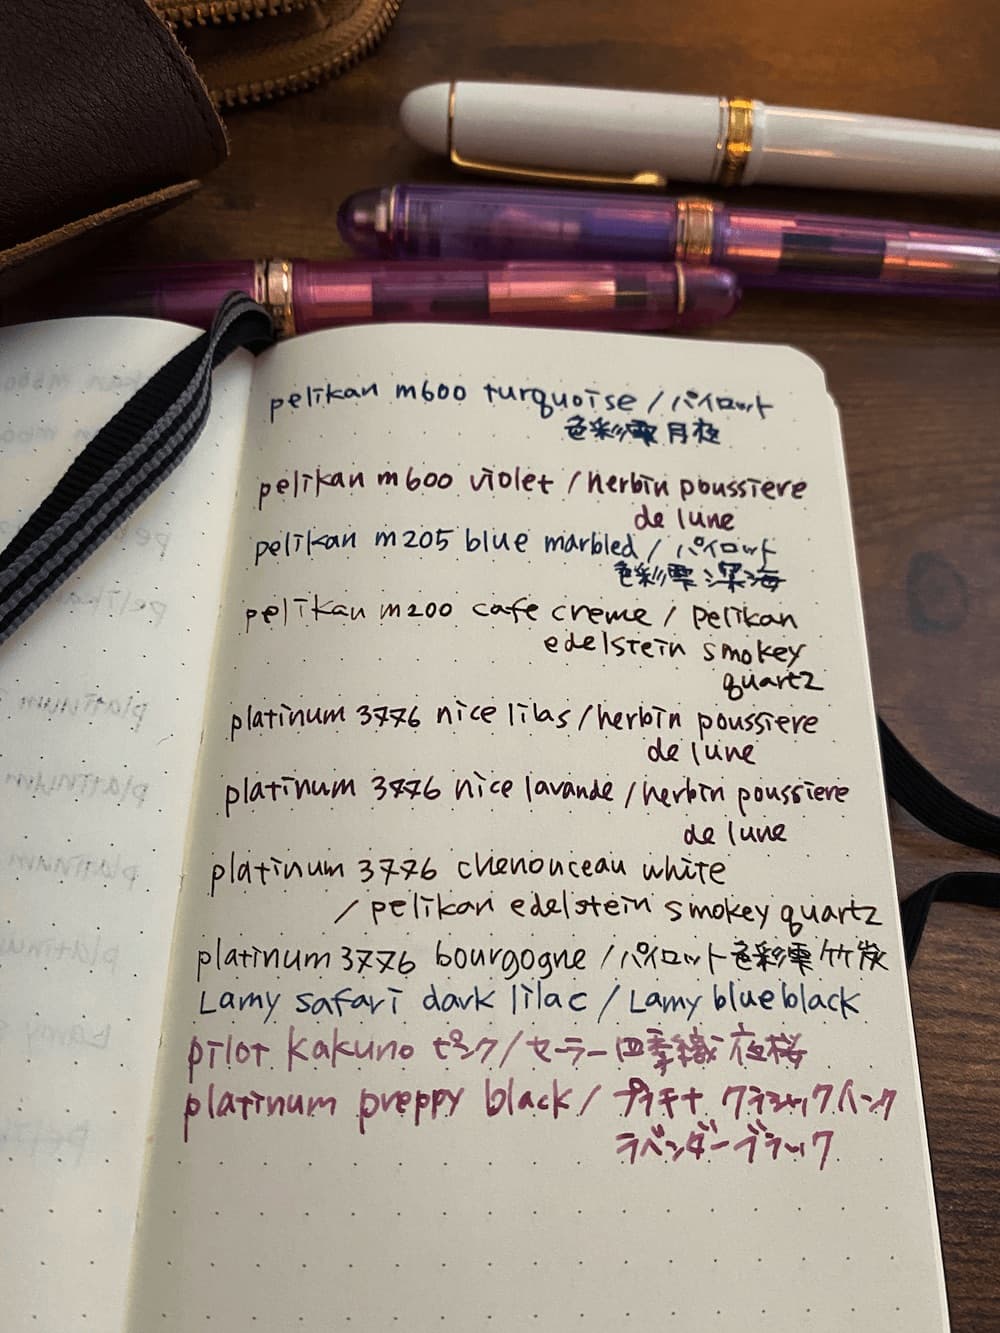 pelikan m600 turquoise / パイロット
色彩雫 月夜
pelikan m600 violet / herbin poussiere
de lune
pelikan m205 blue marbled / パイロット
色彩雫 深海
pelikan m200 cafe creme / pelikan
edelstein smokey
quartz
platinum 3776 nice lilas / herbin poussiere
de lune
platinum 3776 nice lavande / herbin poussiere
de lune
platinum 3776 chenonceau white
/ pelikan edelstein smokey quartz
platinum 3776 bourgogne / パイロット 色彩雫 竹炭
Lamy safari dark lilac / Lamy blueblack
pilot kakuno ピンク / セーラー 四季織 夜桜
platinum preppy black / プラチナ クラシックインク
ラベンダーブラック